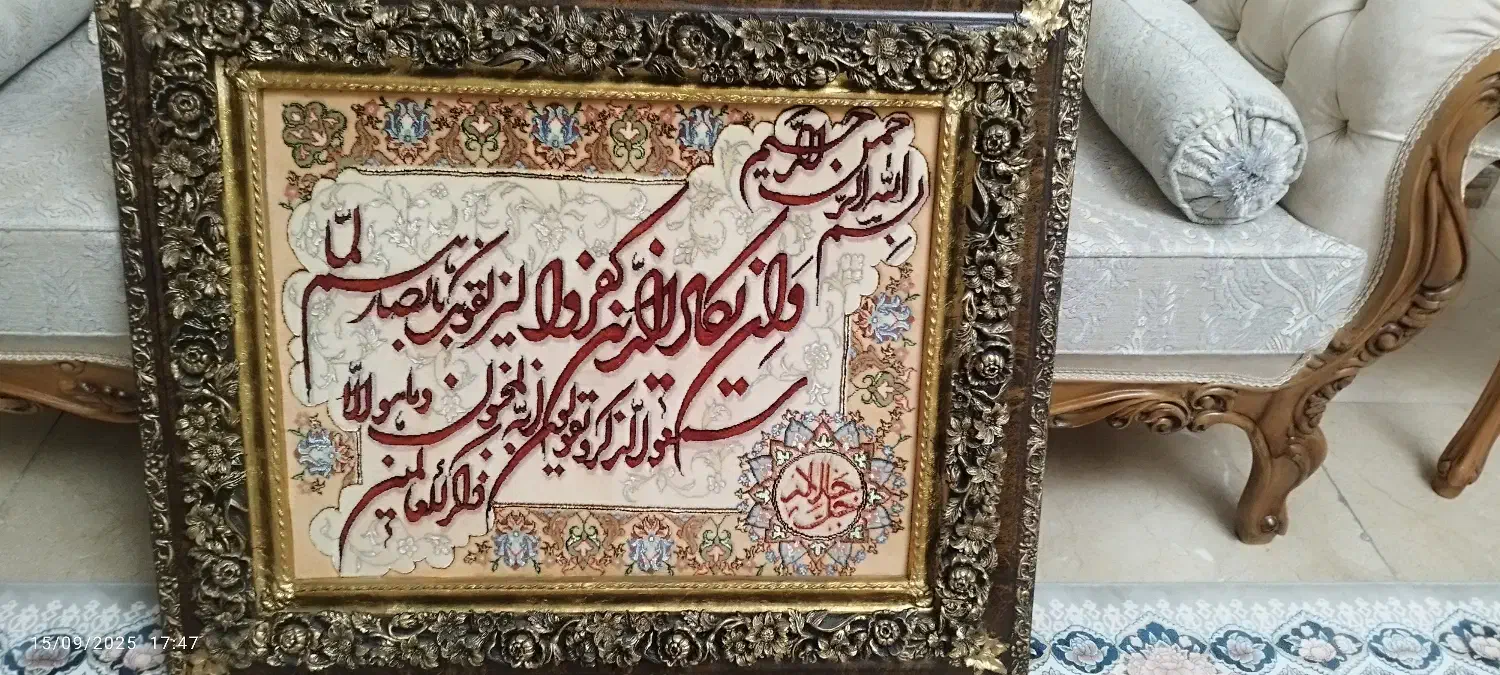 بسم الله الرحمن الرحیم
وان یکاد الذین کفروا لیزلقونک بابصارهم لما
سمعوا الذکر و یقولون انه لمجنون وما هو الا
ذکر للعالمین
جل جلاله
15/09/2025 17:47